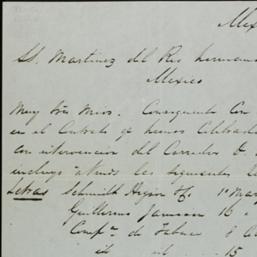 Mex
SS. Martinez del Rio herman
Mexico
Muy Srs Mios. Consequente con
en el Contrato q hemos celebrado
con intervencion del Corredor D.
incluyo a Vmds las siguientes
Letras Schmidt 1º Mar
Guillermo Jamison 16
Comp.ª de
id id 15